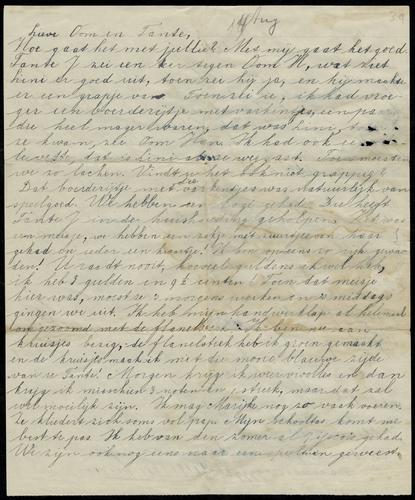 14 Aug 39
Lieve Oom en Tante,
Hoe gaat het met jullie? Met mij gaat het goed
Tante J zei een keer tegen Oom H, wat ziet
Lini er goed uit, toen zei hij ja, en hij maakte
er een grapje van. Toen zei ie, ik had vroe
ger een boerderijtje met varkentjes, en een paar
die heel mager waren, dat was Lini, toen
ze kwam, zei Oom Han. Ik had ook
vette, dat is Lini weg gaat. Toen moesten
we zo lachen. Vindt je het ook niet grappig?
Dat boerderijtje met varkentjes was natuurlijk van
speelgoed. We hebben een logé gehad. Die heeft
Tante J in de huishouding geholpen. Het was
een meisje, we hebben een zakje met zuurtjes van haar
gehad en ieder een krantje! Ik ben opeens zo rijk gewor
den! U raadt nooit, hoeveel guldens ik wel heb,
ik heb 3 gulden en 9½ cent! Toen dat meisje
hier was, moest ze 's morgens werken en 's middags
gingen we uit. Ik heb mijn handwerklap al helemaal
om gezoomd met de flanelsteek. Ik ben nu aan
kruisjes bezig, de flanelsteek heb ik groen gemaakt
en de kruisjes maak ik met die mooie blauwe zijde
van u Tante. Morgen krijg ik weer vioolles en dan
krijg ik misschien 3 noten en 1 streek, maar dat zal
wel moeilijk zijn. Ik mag Marijke nog zo vaak voeren.
Ze kliedert zich soms vol pap. Mijn schooltas komt me
best te pas. Ik heb van den zomer al gehad.
We zijn ook nog eens naar een geweest.